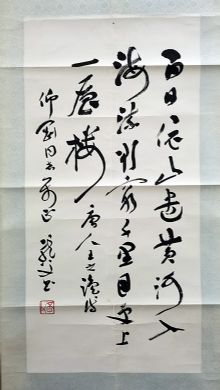 白日依山尽黄河入
海流欲穷千里目更上
一层楼 唐人王之涣诗
仰国同志正